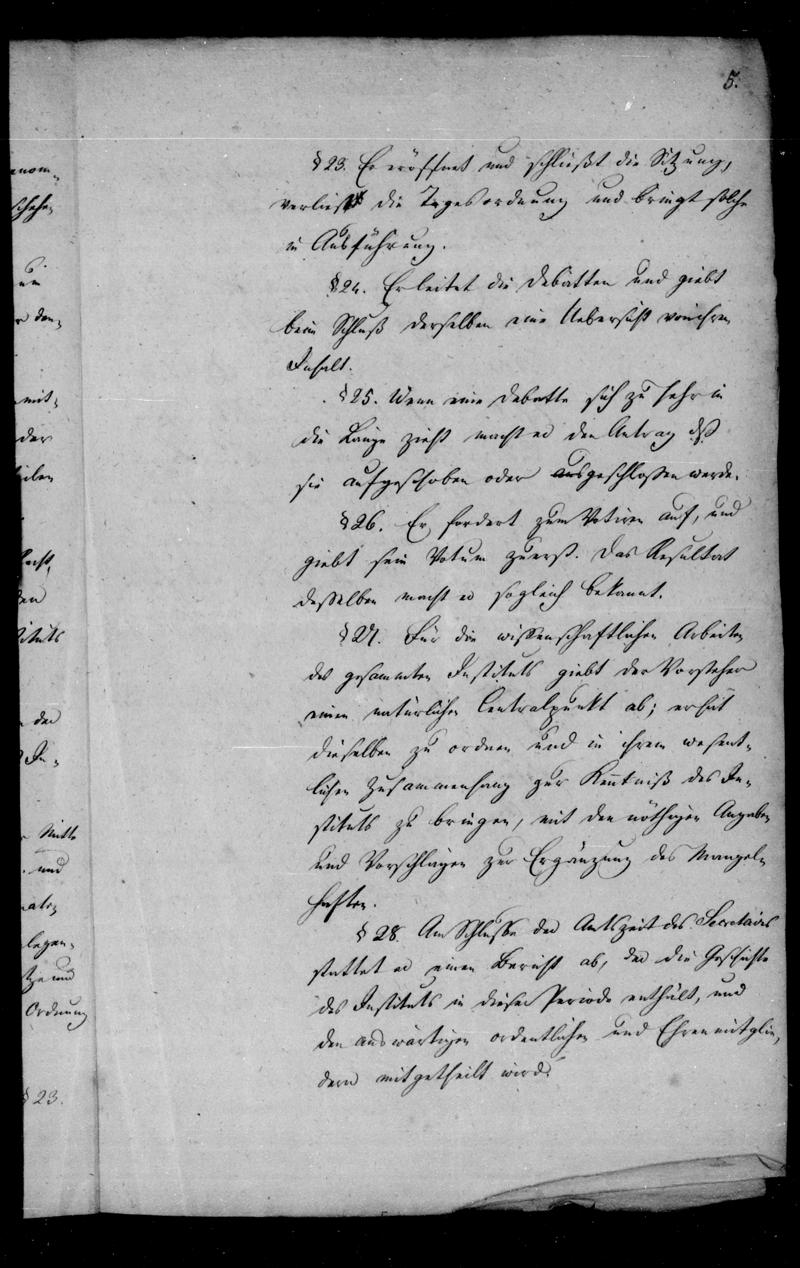 5.
§ 23. Er eröffnet und schließt die Sitzung,
verließt die Tagesordnung und bringt solche
in Ausführung.
§ 24. Er leitet die Debatten und giebt
beim Schluß derselben eine Uebersicht von ihrem
Inhalt.
§ 25. Wenn eine Debatte sich zu sehr in
die Länge zieht macht er den Antrag daß
sie aufgeschoben oder ausgeschlossen werde.
§ 26. Er fordert zum Votiren auf, und
giebt sein Votum zuerst. Das Resultat
desselben macht er sogleich bekannt.
§ 27. Für die wissenschaftlichen Arbeiten
des gesammten Instituts giebt der Vorsteher
einen natürlichen Centralpunkt ab; er hat
dieselben zu ordnen und in ihrem wesent-
lichen Zusammenhang zur Kentniß des In-
stituts zu bringen, mit den nöthigen Angaben
und Vorschlägen zur Ergänzung des Mangel-
haften.
§ 28. Am Schlusse der Amtszeit des Secretairs
stattet er einen Bericht ab, der die Geschichte
des Instituts in dieser Periode enthält, und
den auswärtigen ordentlichen und Ehrenmitglie-
dern mitgetheilt wird.
mit-
der
den
ituts
der
In-
Mitte
und
legen-
Ordnung
§ 23.